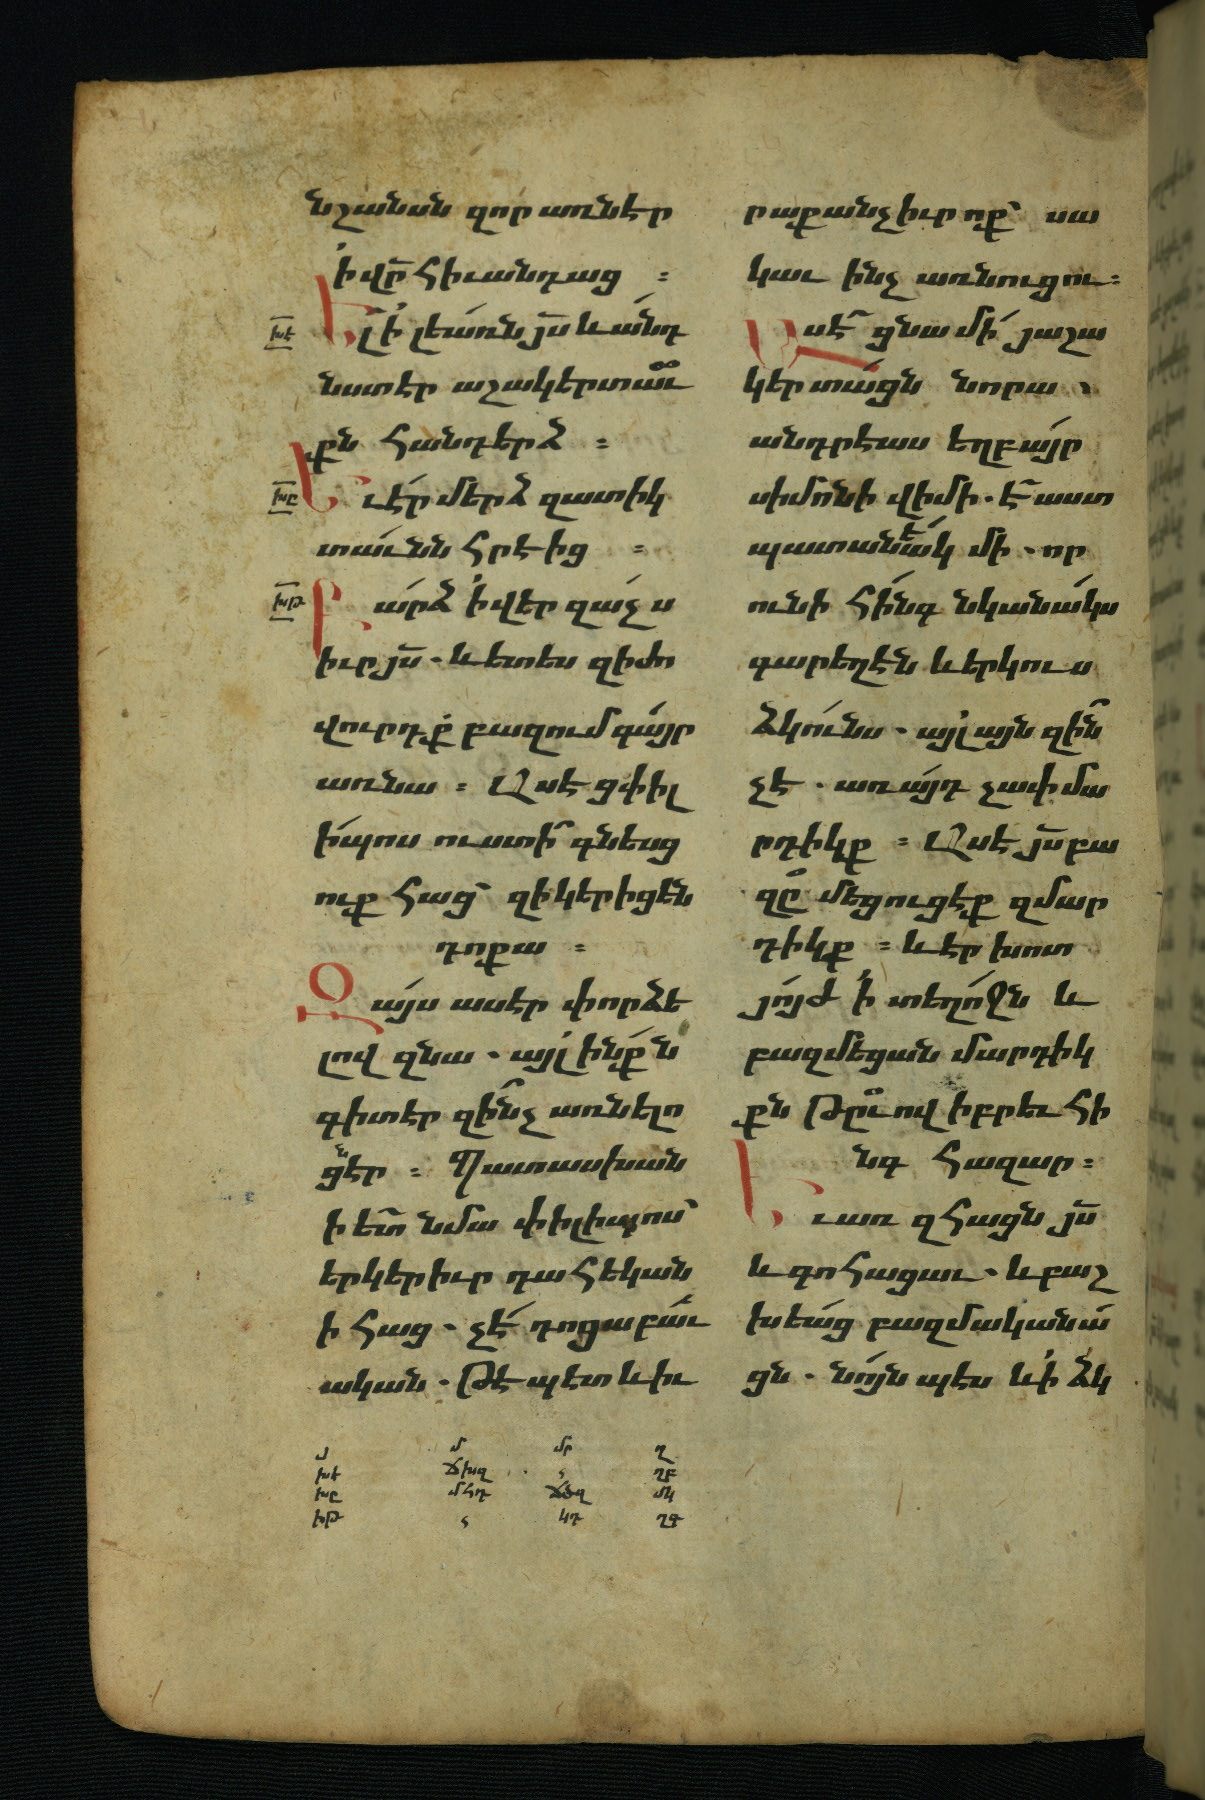 նշանսն զոր առնէր
ի վր հիւանդաց ։
խէ
Ել ի լեառն յս և անդ
նստէր աշակերտաւ
քն հանդերձ ։
խը
Եւ էր մերձ զատիկ
տաւնն հրէից ։
խթ
Բարձ ի վեր զաչս
իւր յս . և ետես զի ժո
վուրդք բազում գայր
առ նա ։ Ասէ ցփիլ
իպոս ուստի գնեսց
ուք հաց զի կերիցեն
դոքա ։
Զայս ասէր փորձե
լով զնա . այլ ինքն
գիտէր զինչ առնելո
ցն էր ։ Պատասխան
ի ետ նմա փիլիպոս
երկերիւր դահեկան
ի հաց . չէ դոցա բաւ
ական . թէպէտ և իւ
րաքանչիւր ոք սա
կաւ ինչ առնուցու ։
Ասէ ցնա մի յաշա
կերտացն նորա .
անդրէաս եղբայր
սիմոնի վիմի . է աստ
պատանեակ մի . որ
ունի հինգ նկանակս
գարեղէն և երկուս
ձկունս . այլ այն զին
չէ . առ այդ չափ մա
րդիկք ։ Ասէ յս բա
զը մեցուցէք զմար
դիկք ։ և էր խոտ
յոյժ ի տեղոջն և
բազմեցան մարդիկ
քն թըւով իբրեւ հի
նգ հազար ։
Եւ առ զհացն յս
և գոհացաւ . և բաշ
խեաց բազմականա
ցն . նոյնպէս և ի ձկ
յ մ մր ղ
խէ ճխզ . ղբ
խը մհդ ճծզ մկ
խթ կդ ղգ